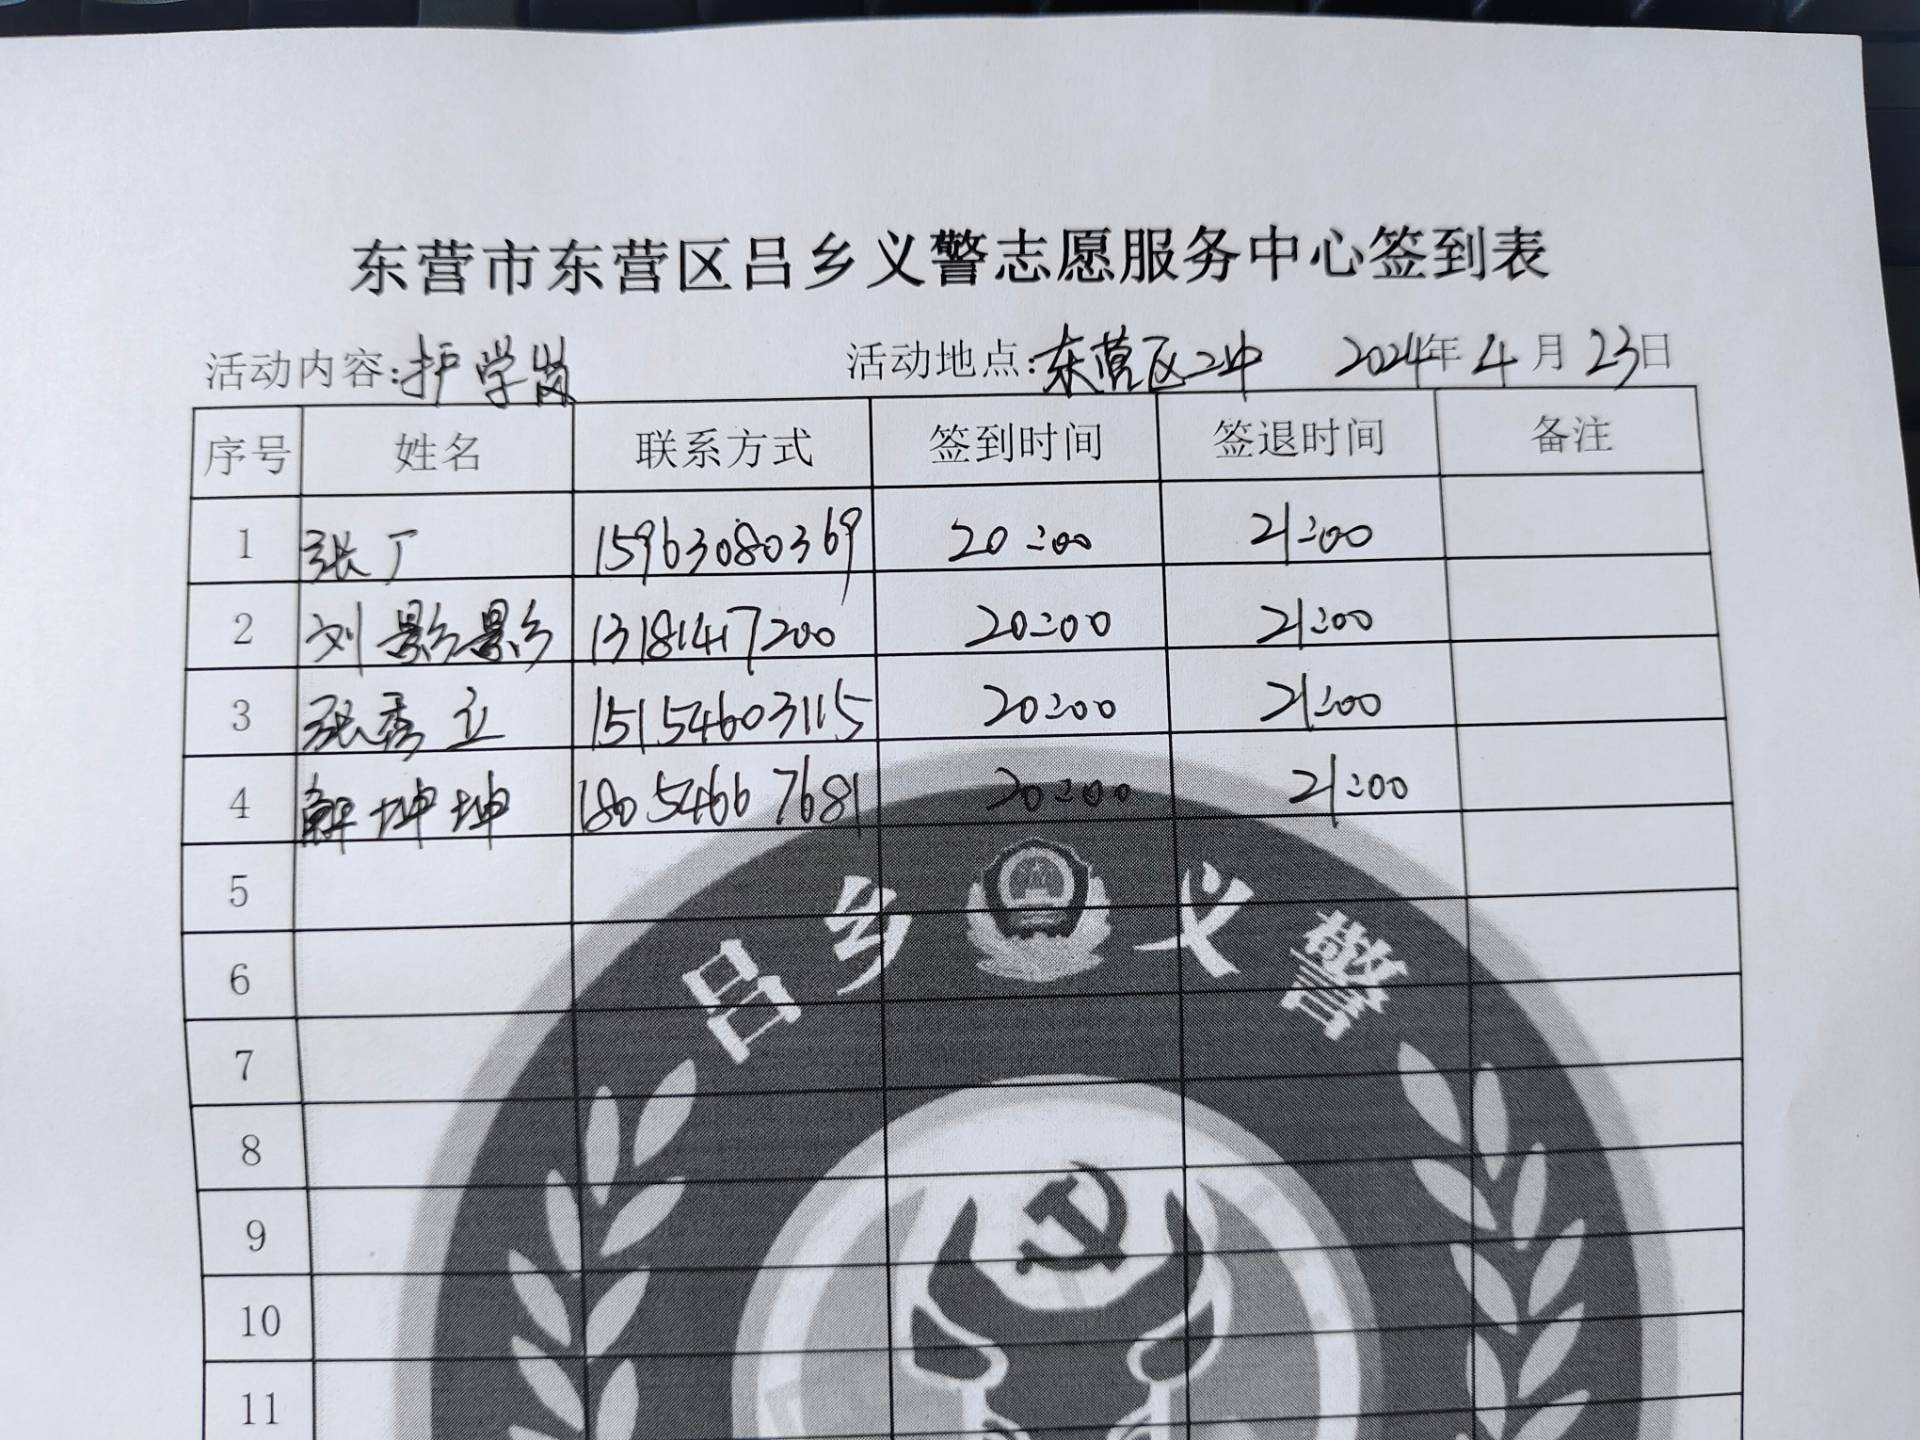 东营市东营区吕乡义警志愿服务中心签到表
活动内容:护学岗 活动地点:东营区二中 2024年4月23日
序号 姓名 联系方式 签到时间 签退时间 备注
1 张广 15963080369 20:00 21:00
2 刘影影 13181417200 20:00 21:00
3 张秀立 15154603115 20:00 21:00
4 解坤坤 18054667681 20:00 21:00
5
6
7
8
9
10
11
吕乡义警